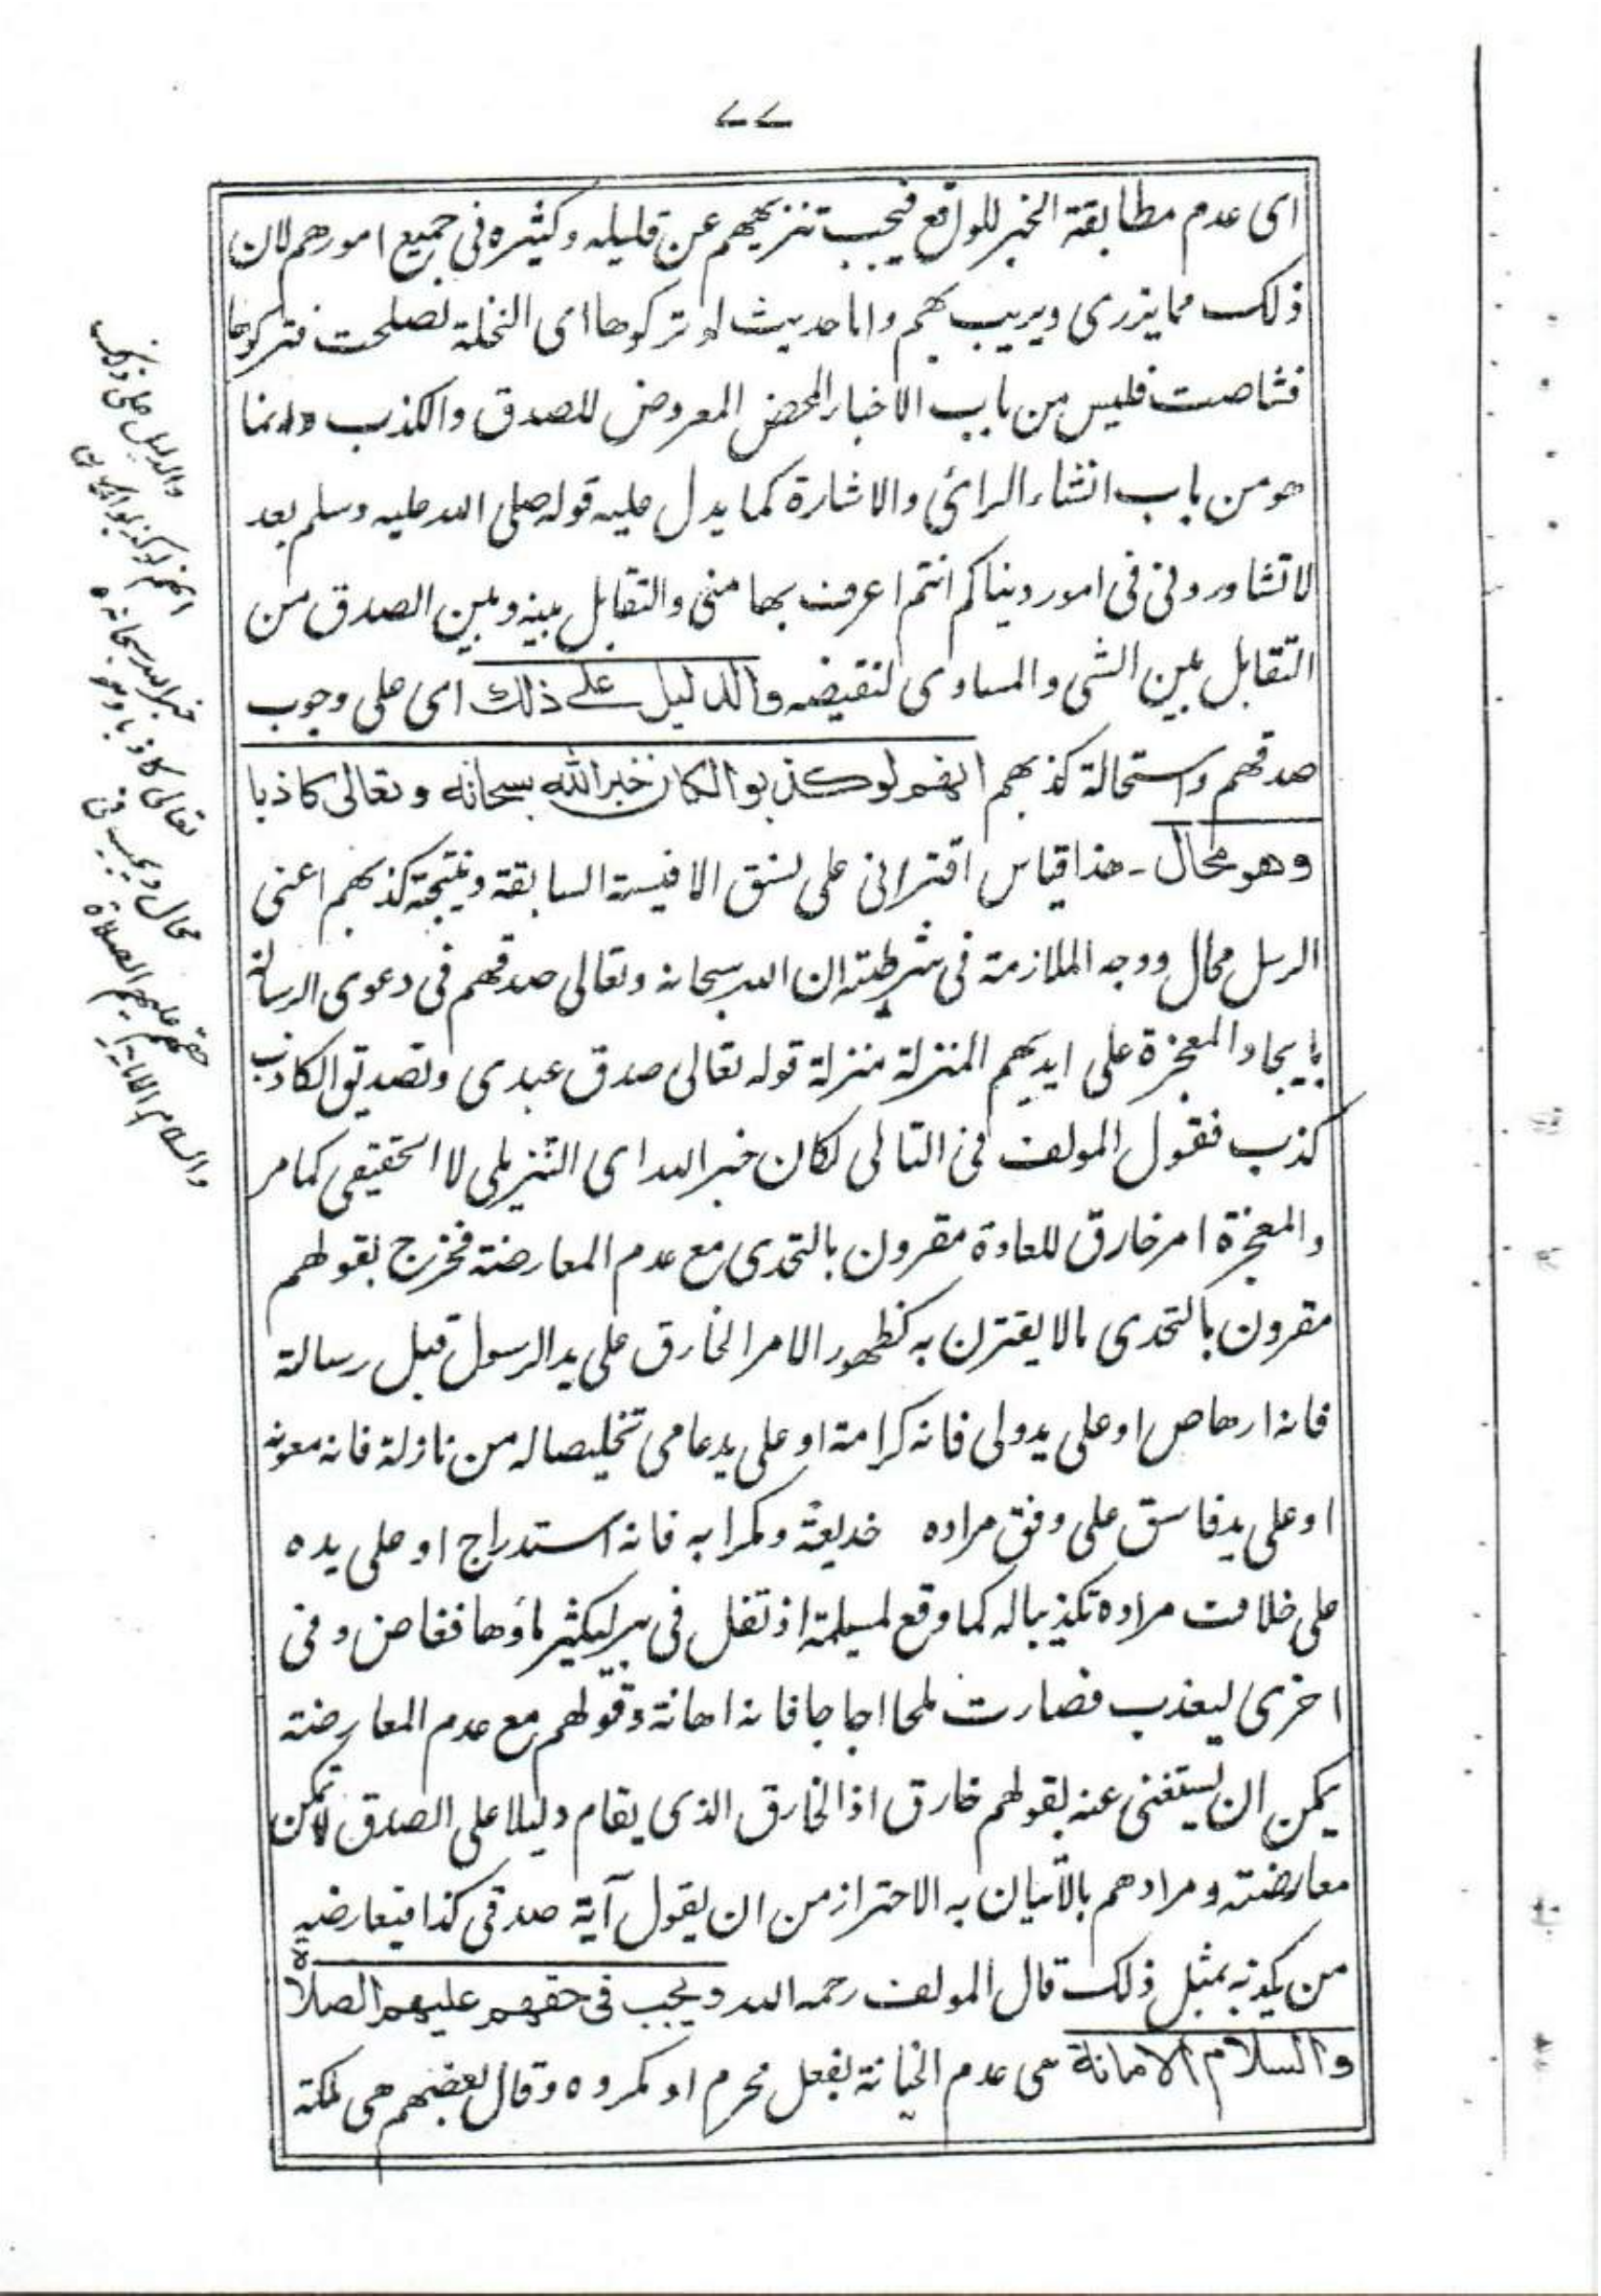 ٧٧
اى عدم مطابقة الخبر للواقع فيجب تنزيههم عن قليله وكثيره فى جميع امورهم لان
ذلك مما يزرى ويريب بهم واما حديث لو تركوها اى النخلة لصلحت فتركوها
فشاصت فليس من باب الاخبار المحض المعروض للصدق والكذب وانما
هو من باب انشاء الرائ والاشارة كما يدل عليه قوله صلى الله عليه وسلم بعد
لا تشاورونى فى امور دينا كم انتم اعرف بها منى والتقابل بينه وبين الصدق من
التقابل بين الشى والمساوى لنقيضه والدليل على ذلك اى على وجوب
صدقهم واستحالة كذبهم انهم لو كذبوا لكان خبر الله سبحانه وتعالى كاذبا
وهو محال - هذا قياس اقترانى على نسق الاقيسة السابقة ونتيجة كذبهم اعنى
الرسل محال ووجه الملازمة فى شرطيته ان الله سبحانه وتعالى صدقهم فى دعوى الرسالة
بايجاد المعجزة على ايديهم المنزلة منزلة قوله تعالى صدق عبدى وتصديق الكاذب
كذب فقول المولف فى التالى لكان خبر الله اى التنزيلى لا الحقيقى كما مر
والمعجزة امر خارق للعادة مقرون بالتحدى مع عدم المعارضة فخرج بقولهم
مقرون بالتحدى مالا يقترن به كظهور الامر الخارق على يد الرسول قبل رسالة
فانه ارهاص او على يد ولى فانه كرامة او على يد عامى تخليصا له من نازلة فانه معونة
او على يد فاسق على وفق مراده خديعة ومكرا به فانه استدراج او على يده
على خلاف مراده تكذيبا له كما وقع لمسيلمة اذ تفل فى بير ليكثير ماؤها فغاض وفى
اخرى ليعذب فصارت ملحا اجاجا فانه اهانة وقولهم مع عدم المعارضة
يمكن ان يستغنى عنه بقولهم خارق اذ الخارق الذى يقام دليلا على الصدق لا تمكن
معارضته ومرادهم بالاتيان به الاحتراز من ان يقول آية صدقى كذا فيعارضه
من يكذبه بمثل ذلك قال المولف رحمه الله ويجب فى حقهم عليهم الصلاة
والسلام الامانة هى عدم الخيانة بفعل محرم او مكروه وقال بعضهم هى ملكة
والدليل على ذلك
انهم لو كذبوا لكان
خبر الله سبحانه و
تعالى كاذبا وهو
محال ويجب فى
حقهم عليهم الصلاة
والسلام الامانة